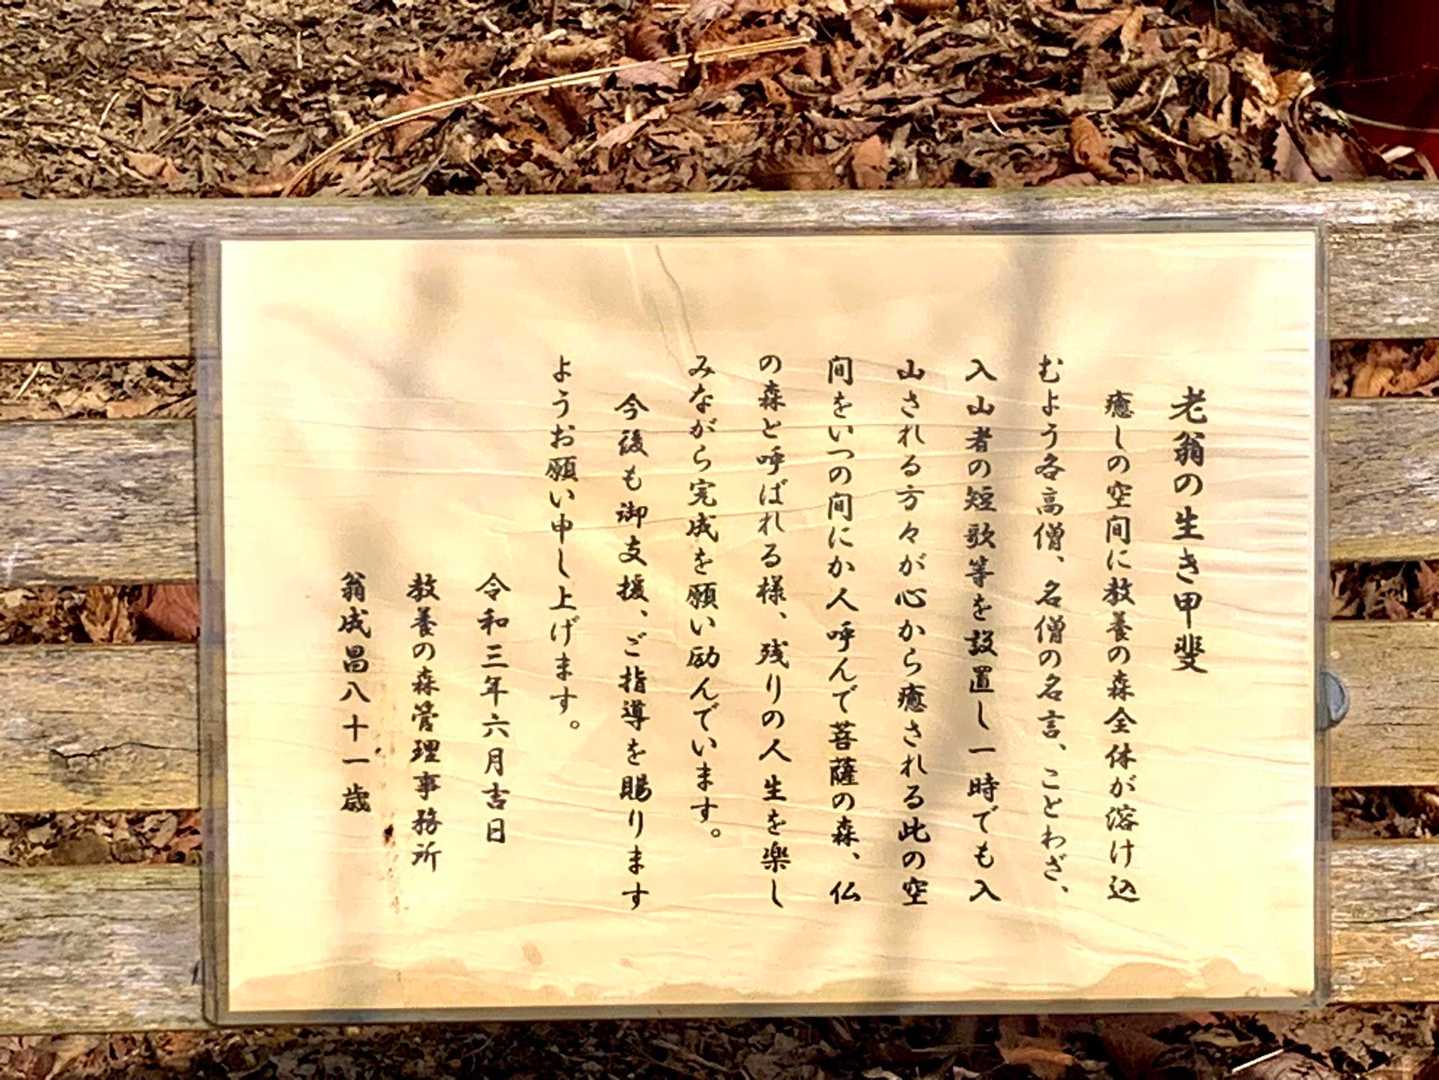 老翁の生き甲斐
癒しの空間に教養の森全体が溶け込
むよう各高僧、名僧の名言、ことわざ、
入山者の短歌等を設置し一時でも入
山される方々が心から癒される此の空
間をいつの間にか人呼んで菩薩の森、仏
の森と呼ばれる様、残りの人生を楽し
みながら完成を願い励んでいます。
今後も御支援、ご指導を賜ります
ようお願い申し上げます。
令和三年六月吉日
教養の森管理事務所
翁成昌八十一歳